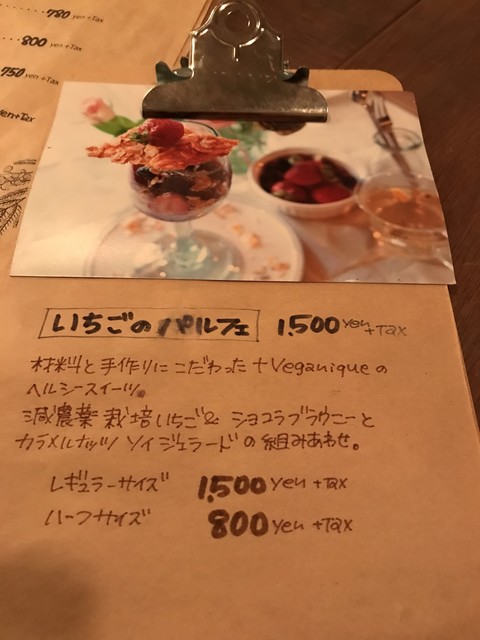 780 yen +Tax
800 yen +Tax
750 yen +Tax
yen+Tax
いちごのパルフェ 1,500 yen +Tax
材料と手作りにこだわった +Veganiqueの
ヘルシースイーツ。
減農薬栽培いちご& ショコラブラウニーと
カラメルナッツ ソイジェラードの組みあわせ。
レギュラーサイズ 1,500 yen +Tax
ハーフサイズ 800 yen +Tax